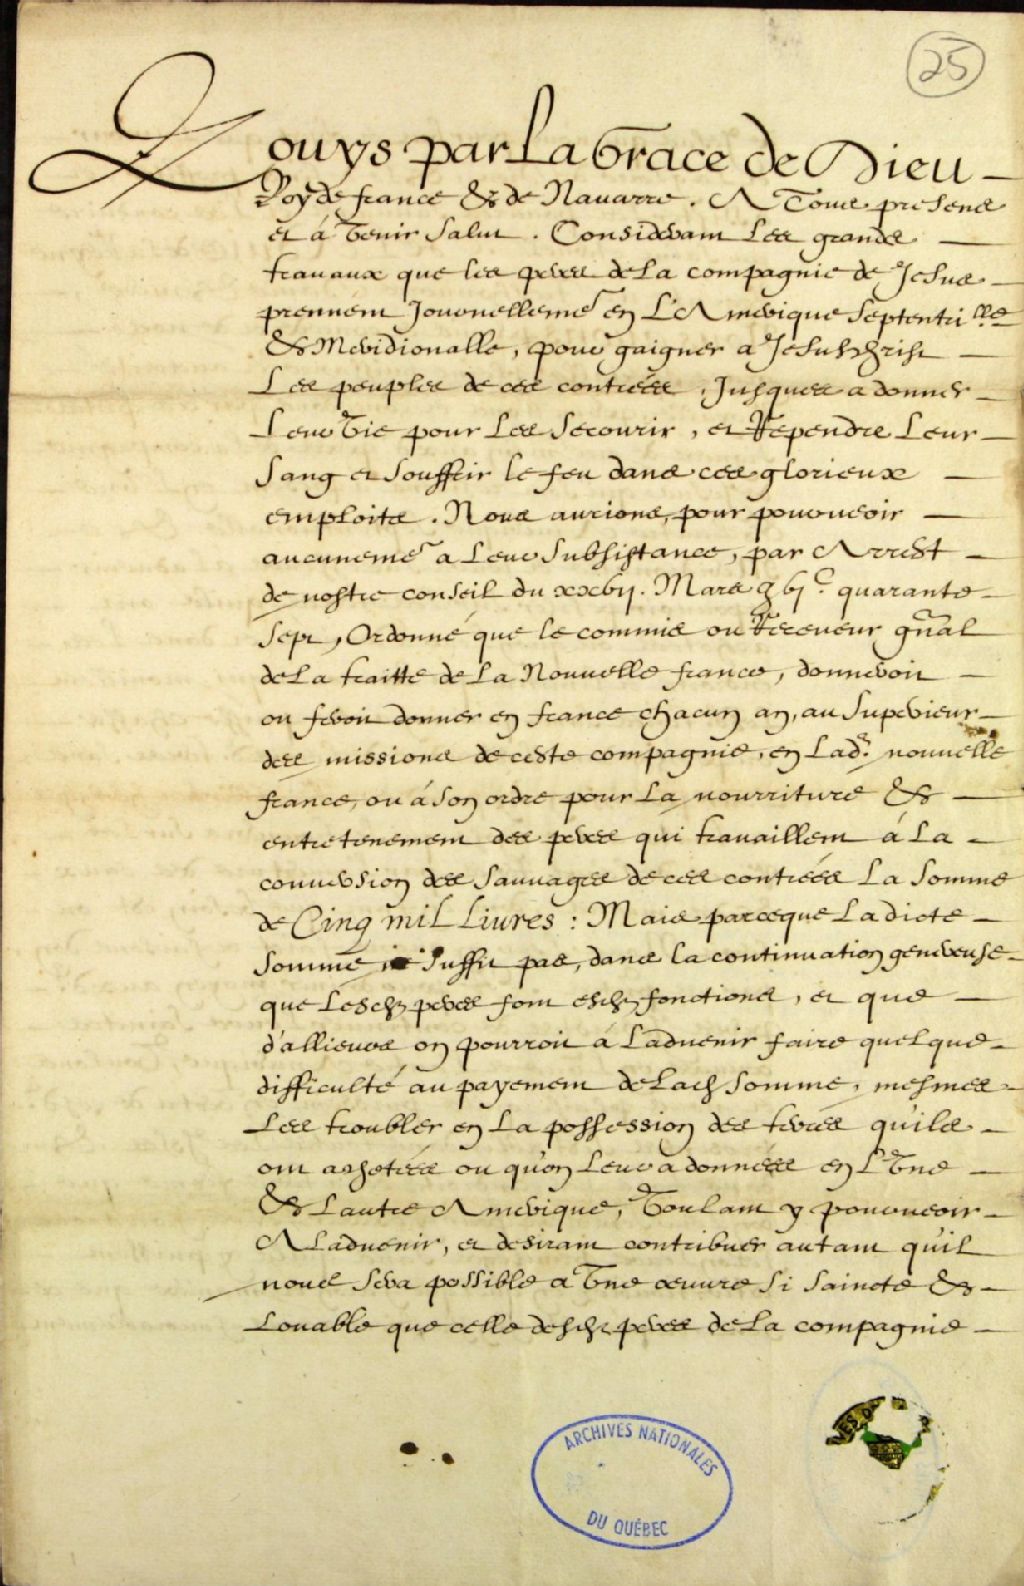 25
Louys par La Grace de Dieu
Roy de france & de Nauarre. A Tous presens
et á venir Salut. Considerant Les grands
trauaux que les peres de La compagnie de Jesus
prennent Journellemt en L'Amerique Septentrille
& Meridionalle, pour gaigner a Jesuschrist
Les peuples de ces contrées, Jusques a donner
Leur vie pour Les Secourir, et Respendre Leur
Sang et Souffrir le feu dans ces glorieux
emploits. Nous aurions, pour pouruoir
aucunemt a Leur Subsistance, par Arrest
de nostre conseil du xxvij. Mars g vjc. quarante
Sept, Ordonné que le commis ou Receueur gnal
de La traitte de La Nouuelle france, donneroit
ou feroit donner en france chacun an, au Superieur
des missions de ceste compagnie, en Lade. nouuelle
france, ou á Son ordre pour La nourriture &
entretenement des peres qui trauaillent á La
conuersion des Sauuages de ces contrées La Somme
de Cinq mil Liures: Mais parceque Ladicte
Somme ne Suffit pas, dans la continuation genereuse
que Lesd. peres font esd. fonctions, et que
d'allieurs on pourroit á Laduenir faire quelque
difficulté au payement de Lad. Somme, mesmes
Les troubler en La possession des terres qu'ils
ont achetées ou qu'on Leur a données en L'vne
& Lautre Amerique, Voulant y pouruoir
A Laduenir, et desirant contribuer autant qu'il
nous Sera possible a vne oeuure Si Saincte &
Louable que celle desd. peres de La compagnie
ARCHIVES NATIONALES
DU QUÉBEC